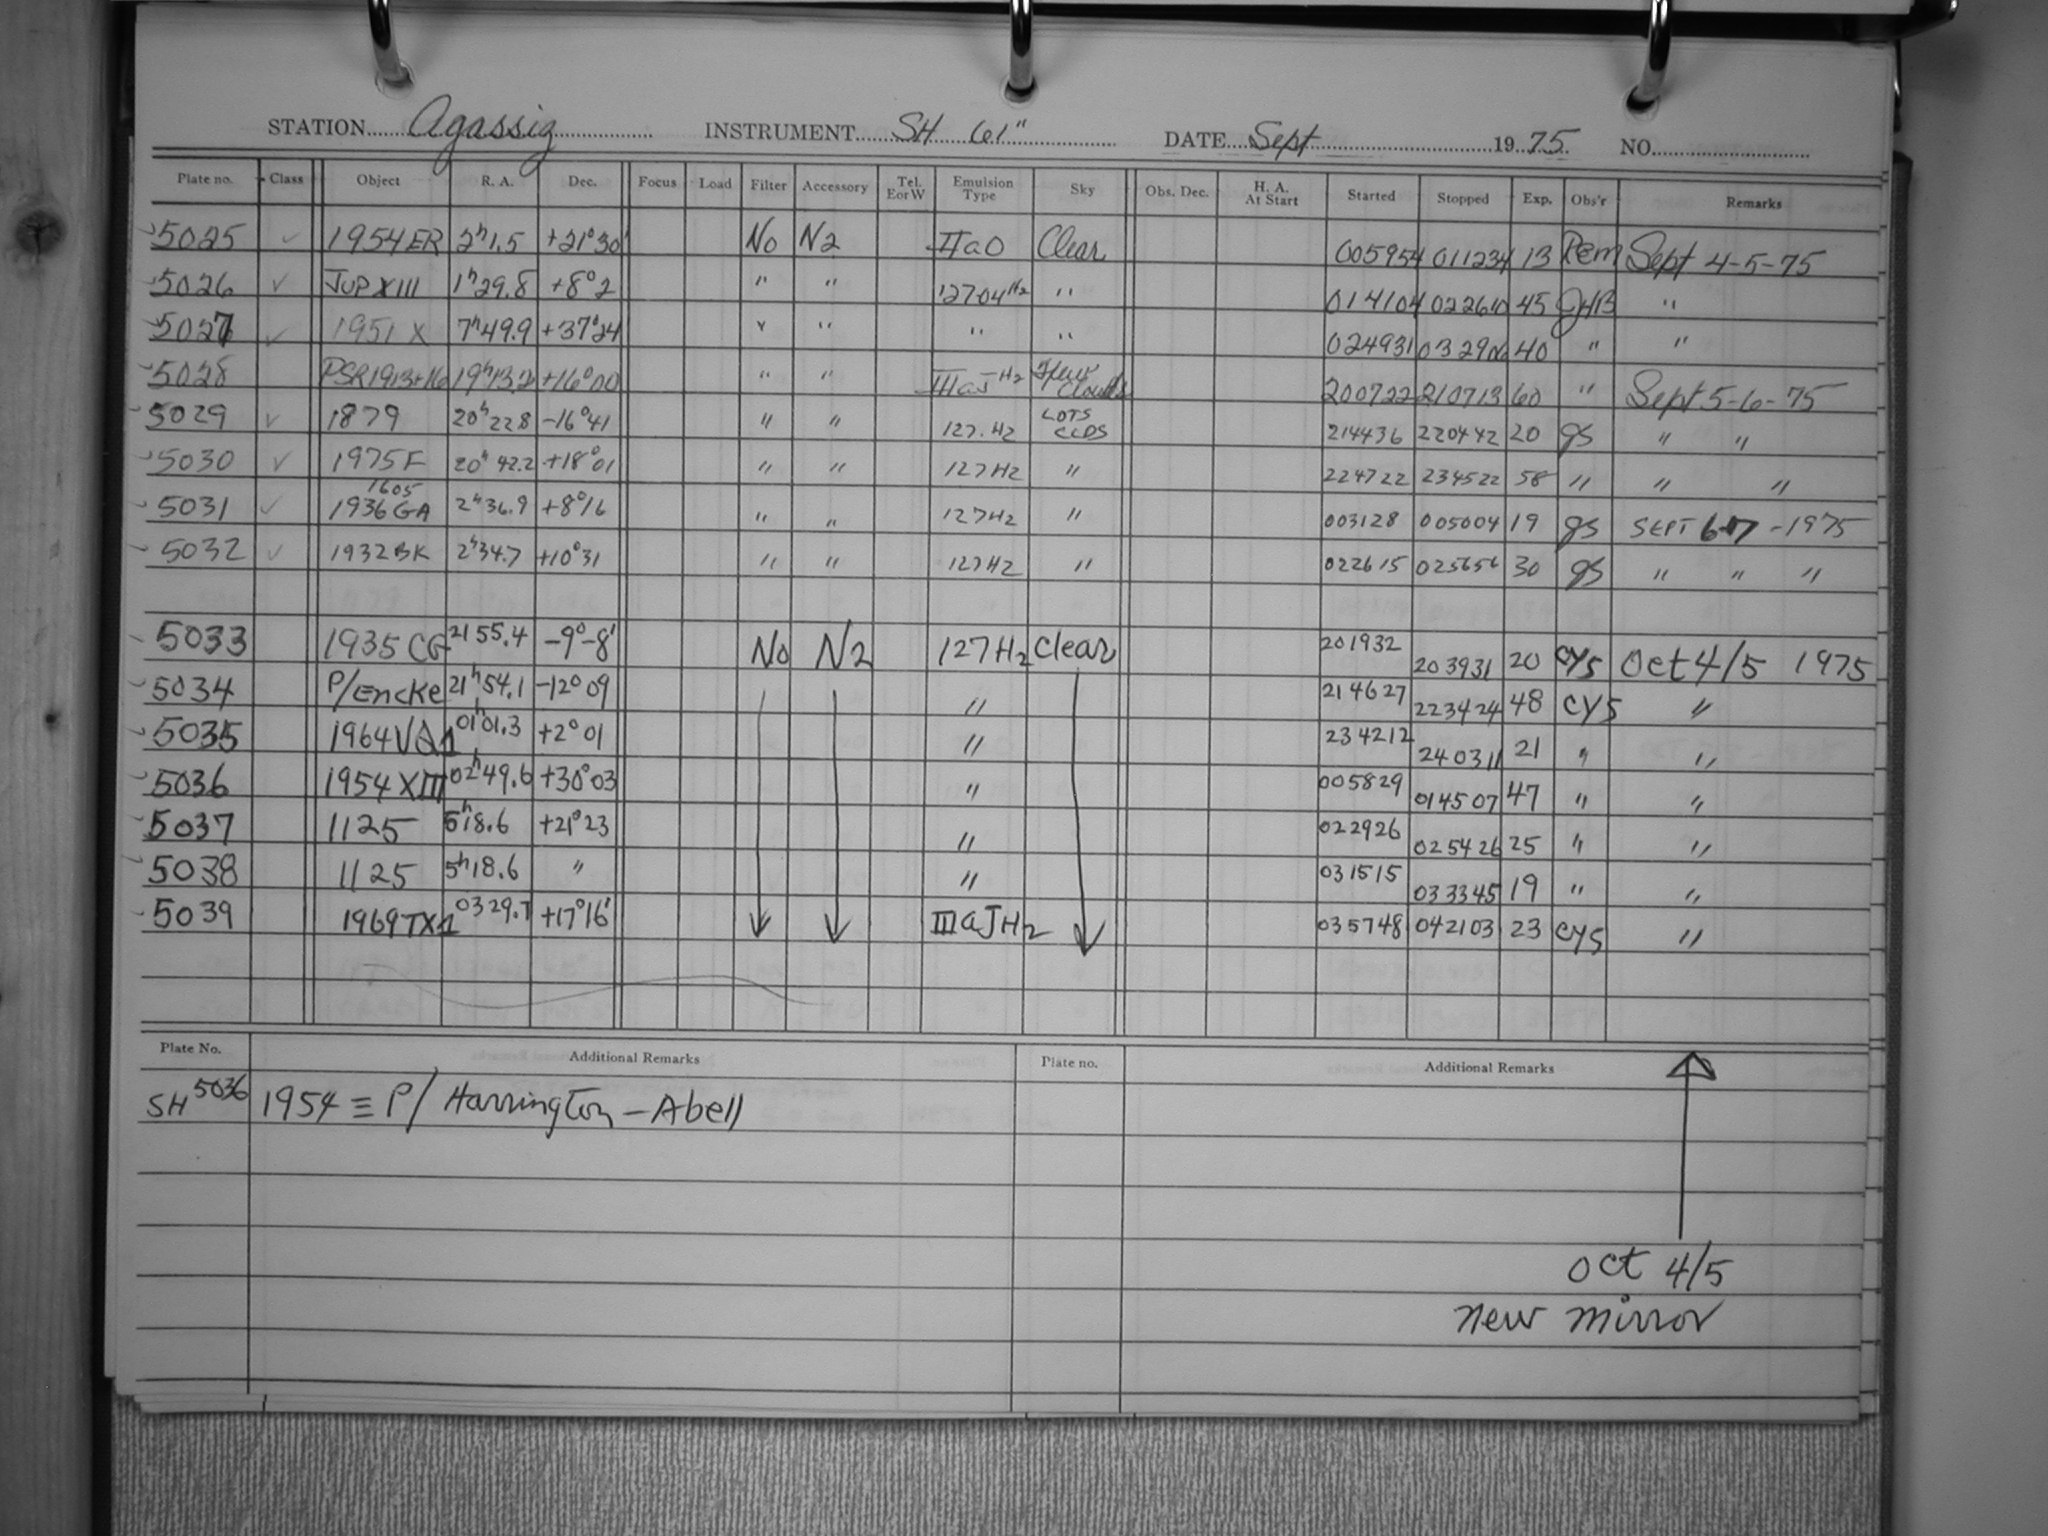 STATION Agassiz INSTRUMENT SH 61" DATE Sept 1975. NO.
Plate no. Class Object R. A. Dec. Focus Load Filter Accessory Tel. E or W Emulsion Type Sky Obs. Dec. H. A. At Start Started Stopped Exp. Obs'r Remarks
5025 ✓ 1954 ER 2h1.5 +21°30' No N2 IIaO Clear 005954 011234 13 REM Sept 4-5-75
5026 ✓ JUP XIII 1h29.8 +8°2 " " 12704 H2 " 014104 022610 45 JHB "
5027 ✓ 1951 X 7h49.9 +37°24 " " " " 024931 40 " "
5028 PSR1913+16 19h13.2 +16°00 " " IIIaJ H2 Clouds 200722 210713 60 " Sept 5-6-75
5029 ✓ 1879 20h22.8 -16°41 " " 127.H2 LOTS CLDS 214436 220442 20 gs " "
5030 ✓ 1975F 20h42.2 +18°01 " " 127H2 " 224722 234522 58 " " "
5031 ✓ 1605 1936 GA 2h36.9 +8°16 " " 127H2 " 003128 005004 19 gs SEPT 6-7-1975
5032 ✓ 1932BK 2h34.7 +10°31 " " 127H2 " 022615 025656 30 gs " " "
5033 1935 CG 2155.4 -9°-8' No N2 127H2 Clear 201932 203931 20 CYS Oct 4/5 1975
5034 P/Encke 21h54.1 -12°09 " 214627 223424 48 CYS "
5035 1964VQ1 01h01.3 +2°01 " 234212 240311 21 " "
5036 1954 XIII 02h49.6 +30°03 " 005829 014507 47 " "
5037 1125 5h18.6 +21°23 " 022926 025426 25 " "
5038 1125 5h18.6 " " 031515 033345 19 " "
5039 1969TX1 0329.7 +17°16' IIIaJH2 035748 042103 23 CYS "
Plate No. Additional Remarks Plate no. Additional Remarks
SH 5036 1954 ≡ P/ Harrington-Abell
Oct 4/5
New mirror